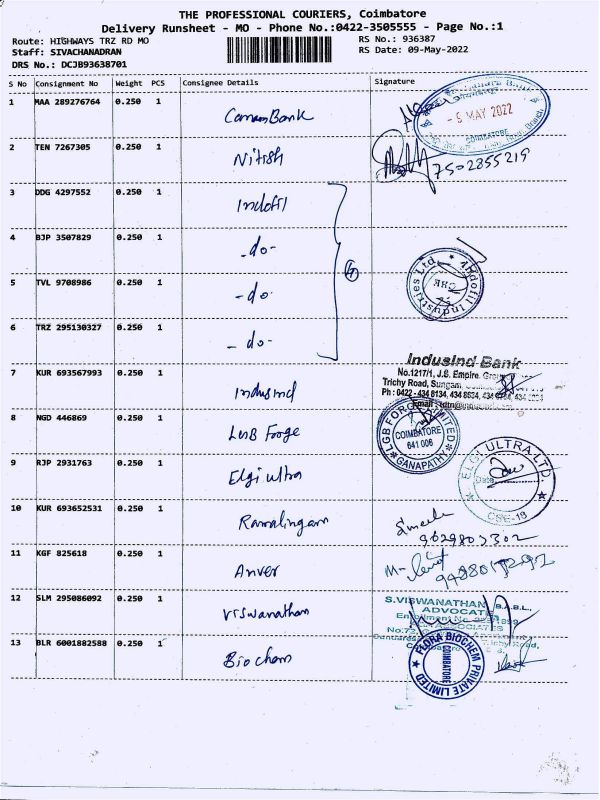 THE PROFESSIONAL COURIERS, Coimbatore
Delivery Runsheet - MO - Phone No.:0422-3505555 - Page No.:1
Route: HIGHWAYS TRZ RD MO RS No.: 936387
Staff: SIVACHANADRAN RS Date: 09-May-2022
DRS No.: DCJB93638701
S No Consignment No Weight PCS Consignee Details Signature
1 MAA 289276764 0.250 1 Canara Bank
MAY 2022
COIMBATORE
2 TEN 7267305 0.250 1 Nitish 7502855219
3 DDG 4297552 0.250 1 Indofil
4 BJP 3507829 0.250 1 -do-
4
Indofil Industries Ltd.
5 TVL 9708986 0.250 1 -do-
6 TRZ 295130327 0.250 1 -do-
IndusInd Bank
No.1217/1, J.B. Empire,
7 KUR 693567993 0.250 1 Indusind
Trichy Road, Sungam,
Ph : 0422 - 434 8134, 434 8634,
8 NGD 446869 0.250 1 LGB Forge
LGB FORGE LIMITED
COIMBATORE
641 006
GANAPATHY
9 RJP 2931763 0.250 1 Elgi ultra
ELGI ULTRA LTD.
Date
CBE-18
10 KUR 693652531 0.250 1 Ramalingam
9629803302
11 KGF 825618 0.250 1 Anver
12 SLM 295086092 0.250 1 Viswanathan
S.VISWANATHAN B.A.B.L.,
ADVOCATE
Enrollment No.
No.72,
13 BLR 6001882588 0.250 1 Biochem
FLORA BIOCHEM PRIVATE LIMITED
COIMBATORE